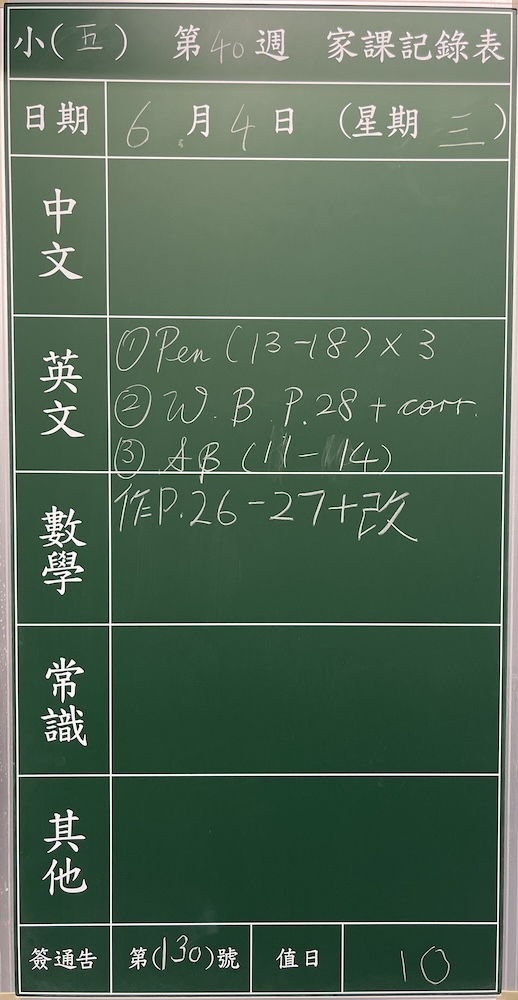 小(五) 第40週 家課記錄表
日期 6月4日 (星期三)
中文
英文
①Pen (13-18)×3
②W.B P.28+corr.
③AB (11-14)
數學
作P.26-27+改
常識
其他
簽通告 第(130)號 值日 10